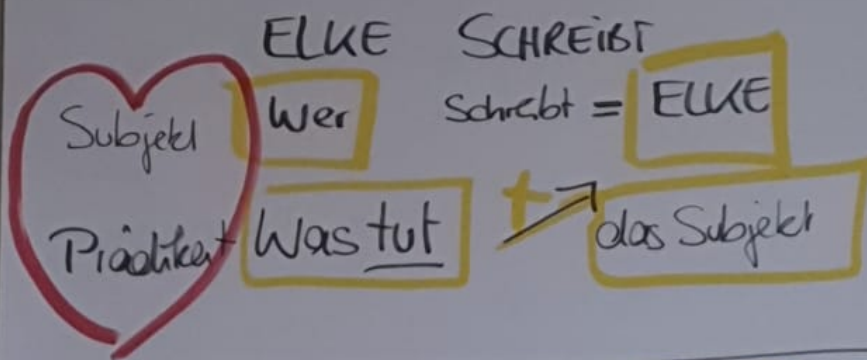 ELKE SCHREIBT
Subjekt Wer schreibt = ELKE
Prädikat Was tut + das Subjekt